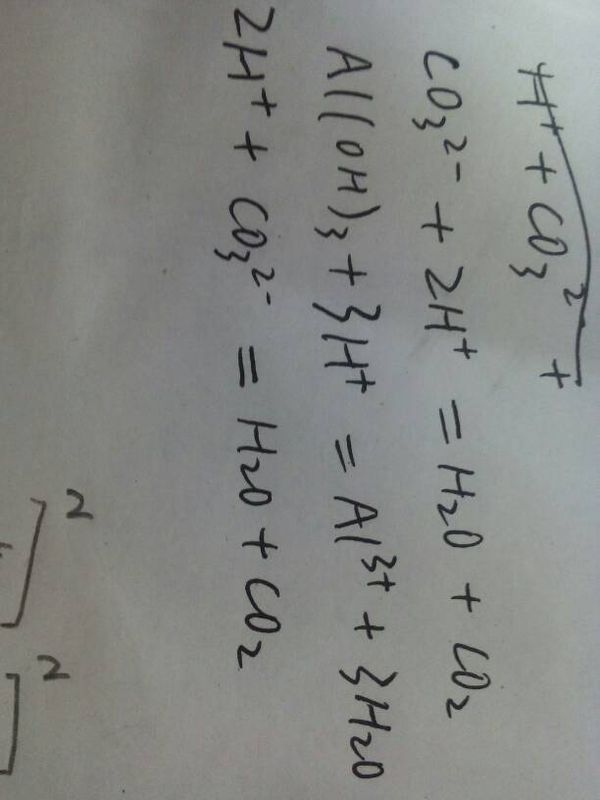 H⁺ + CO₃² +
CO₃²⁻ + 2H⁺ = H₂O + CO₂
Al(OH)₃ + 3H⁺ = Al³⁺ + 3H₂O
2H⁺ + CO₃²⁻ = H₂O + CO₂
]²
]²